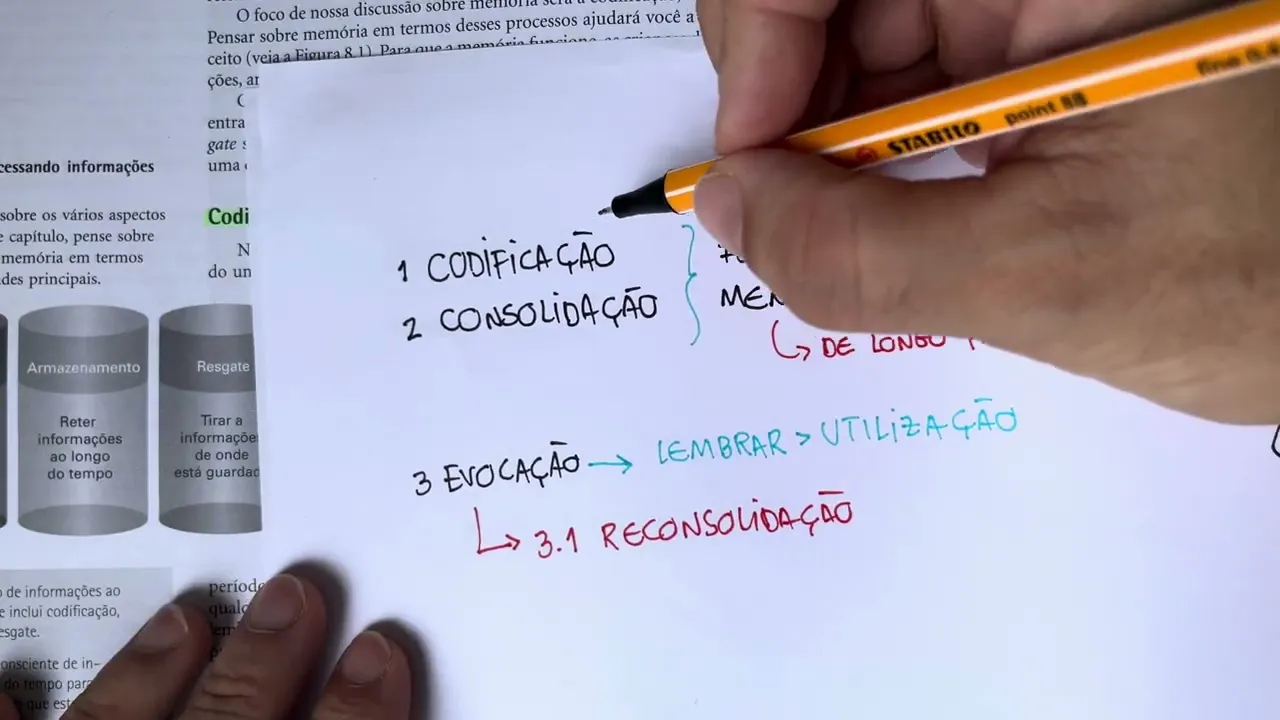 O foco de nossa discussão sobre memória será a codificação,
Pensar sobre memória em termos desses processos ajudará você a
ceito (veia a Figura 8.1). Para que a memória funcione,
ções,
entra
gate
uma
cessando informações
sobre os vários aspectos
e capítulo, pense sobre
memória em termos
des principais.
Codi
N
do un
Armazenamento
Reter
informações
ao longo
do tempo
Resgate
Tirar a
informaçõe
de onde
está guardad
o de informações ao
e inclui codificação,
esgate.
onsciente de in-
do tempo para
que est
período
STABILO point 88
1 CODIFICAÇÃO
2 CONSOLIDAÇÃO
MEM
DE LONGO
3 EVOCAÇÃO → LEMBRAR > UTILIZAÇÃO
3.1 RECONSOLIDAÇÃO